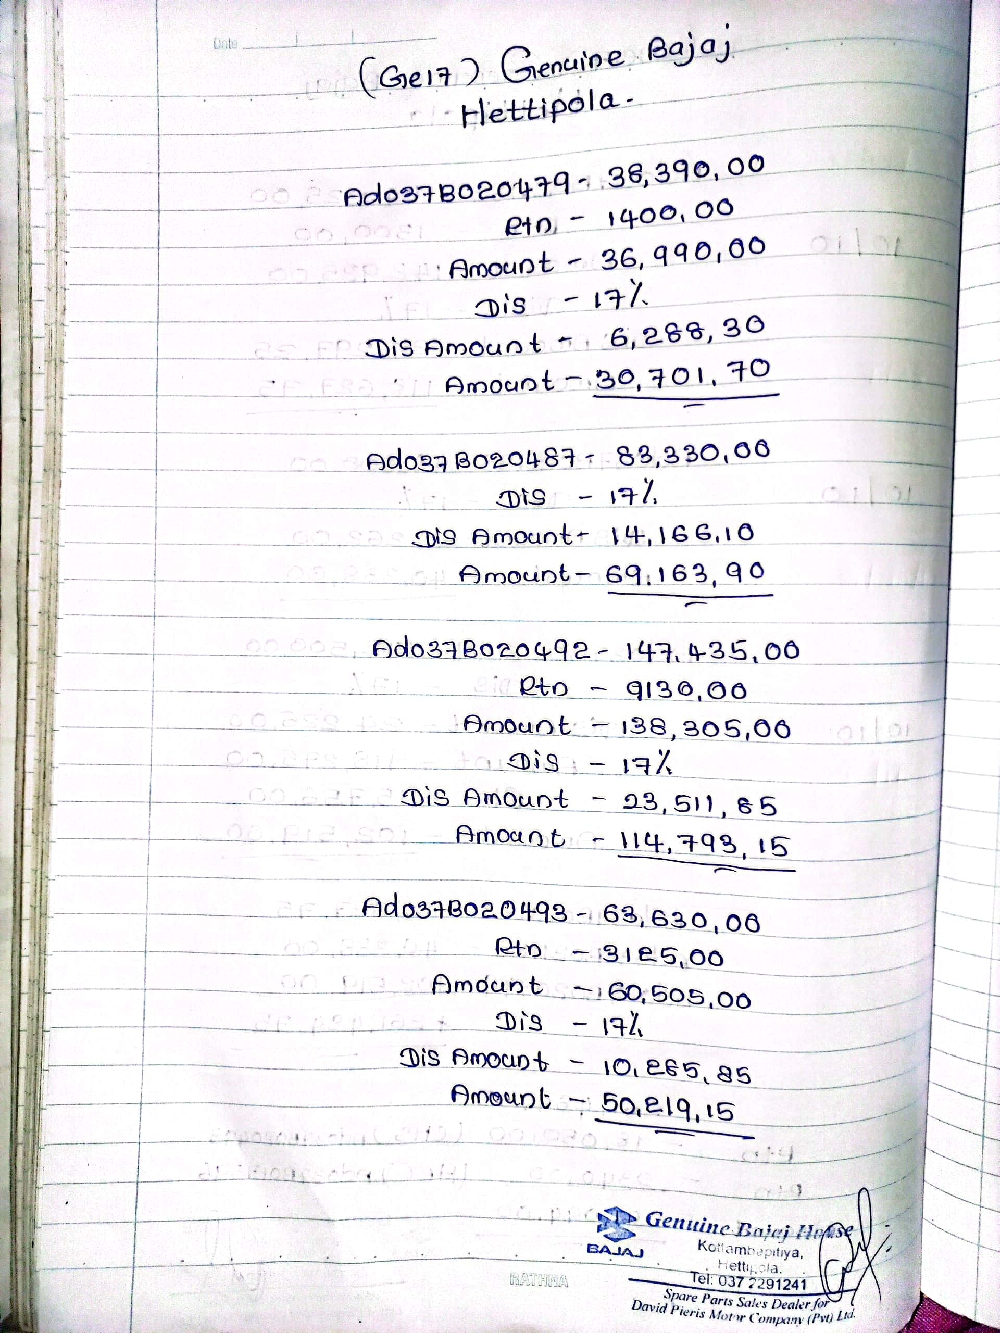 Date
(Ge17) Genuine Bajaj
Hettipola.
Ado37B020479 - 38,390,00
Rtn - 1400,00
Amount - 36,990,00
Dis - 17%
Dis Amount - 6,288,30
Amount - 30,701,70
Ado37B020487 - 83,330,00
Dis - 17%
Dis Amount - 14,166,10
Amount - 69,163,90
Ado37B020492 - 147,435,00
Rtn - 9130,00
Amount - 138,305,00
Dis - 17%
Dis Amount - 23,511,85
Amount - 114,793,15
Ado37B020493 - 63,630,00
Rtn - 3125,00
Amount - 60,505,00
Dis - 17%
Dis Amount - 10,285,85
Amount - 50,219,15
Genuine Bajaj House
BAJAJ
Kottambapitiya,
Hettipola.
Tel: 037 2291241
Spare Parts Sales Dealer for
David Pieris Motor Company (Pvt) Ltd.
RATHNA